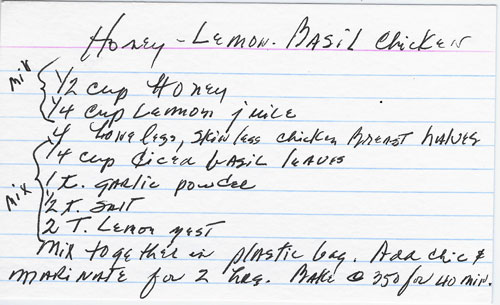 Honey-Lemon-Basil Chicken
Mix
1/2 cup Honey
1/4 cup Lemon juice
4 boneless, skinless chicken Breast halves
Mix
1/4 cup diced basil leaves
1 t. garlic powder
1/2 t. salt
2 T. Lemon zest
Mix together in plastic bag. Add chic &
marinate for 2 hrs. Bake @ 350 for 40 min.